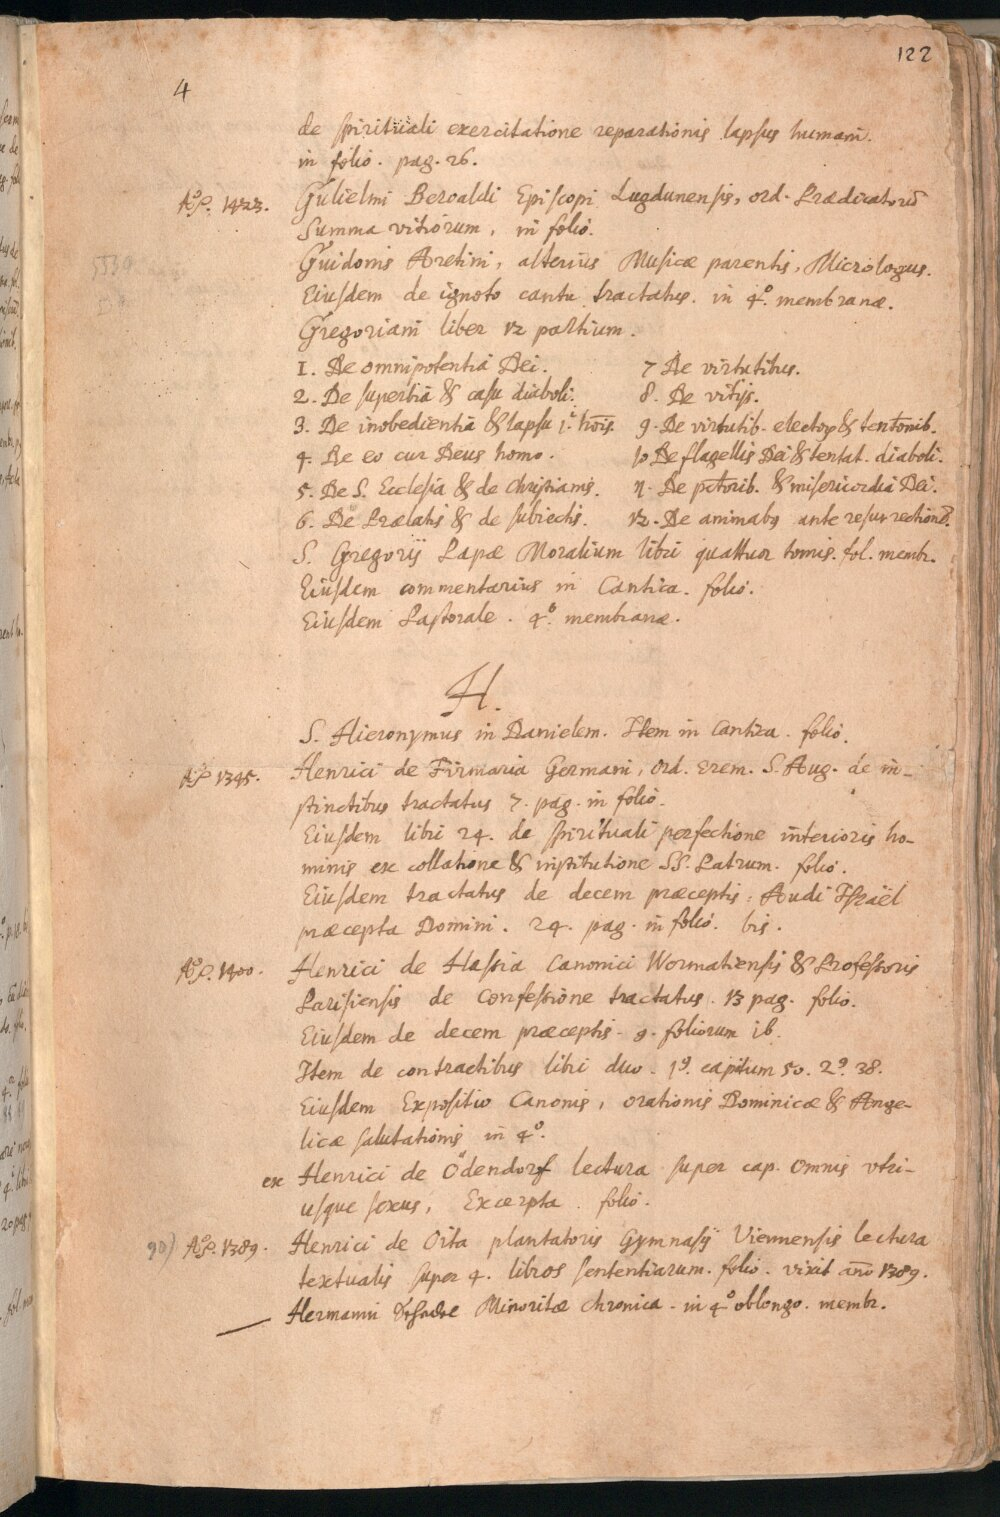 122
4
de spirituali exercitatione reparationis lapsus humani.
in folio. pag. 26.
Aº. 1423. Gulielmi Beroaldi Episcopi Lugdunensis, ord. Prædicatorū
Summa vitiorum, in folio.
Guidonis Aretini, alterius Musicæ parentis, Micrologus.
Eiusdem de ignoto cantu tractatus. in 4º. membranæ.
Gregoriani liber 12 partium.
1. De omnipotentia Dei. 7 De virtutibus.
2. De superbia & casu diaboli. 8. De vitijs.
3. De inobedientia & lapsu 1.i hōis. 9. De virtutib. electoꝝ & tentōnib.
4. De eo cur Deus homo. 10 De flagellis Dei & tentat. diaboli.
5. De S. Ecclesia & de Christianis. 11. De pctorib. & misericordia Dei.
6. De Prælatis & de subiectis. 12. De animabꝫ ante resurrectionē.
S. Gregorij Papæ Moralium libri quattuor tomis. fol. membr.
Eiusdem commentarius in Cantica. folio.
Eiusdem Pastorale. 4º. membranæ.
H.
S. Hieronymus in Danielem. Item in Cantica. folio.
Aº 1345. Henrici de Firmaria Germani, ord. Erem. S. Aug. de in-
stinctibus tractatus 7. pag. in folio.
Eiusdem libri 24. de spirituali perfectione interioris ho-
minis ex collatione & institutione SS. Patrum. folio.
Eiusdem tractatus de decem præceptis: Audi Israël
præcepta Domini. 24. pag. in folio. bis.
Aº. 1400. Henrici de Hassia Canonici Wormatiensis & Professoris
Parisiensis de Confessione tractatus. 13 pag. folio.
Eiusdem de decem præceptis. 9. foliorum ib.
Item de contractibus libri duo. 1ꝰ. capitum 50. 2ꝰ. 38.
Eiusdem Expositio Canonis, orationis Dominicæ & Ange-
licæ salutationis in 4º.
ex Henrici de Ödendorf lectura super cap. Omnis vtri-
usque sexus, Excerpta. folio.
90) Aº. 1389. Henrici de Oita plantatoris Gymnasij Viennensis lectura
textualis super 4. libros sententiarum. folio. vixit año 1389.
Hermanni Minoritæ chronica. in 4º oblongo. membr.